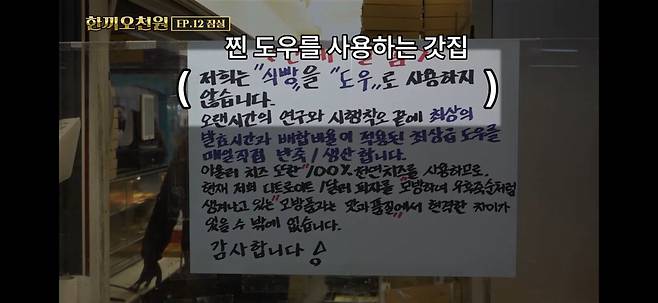 한끼오천원 EP.12 잠실
찐 도우를 사용하는 갓집
저희는 "식빵"을 "도우"로 사용하지
않습니다.
오랜시간의 연구와 시행착오 끝에 최상의
발효시간과 배합비율이 적용된 최상급 도우를
매일직접 반죽 / 생산 합니다.
아울러 치즈 또한 "100% 천연치즈를 사용하므로.
현재 저희 디트로이트 1달러 피자를 모방하여 우후죽순처럼
생겨나고 있는 "모방품과는 맛과품질"에서 현격한 차이가
있을 수 밖에 없습니다.
감사합니다